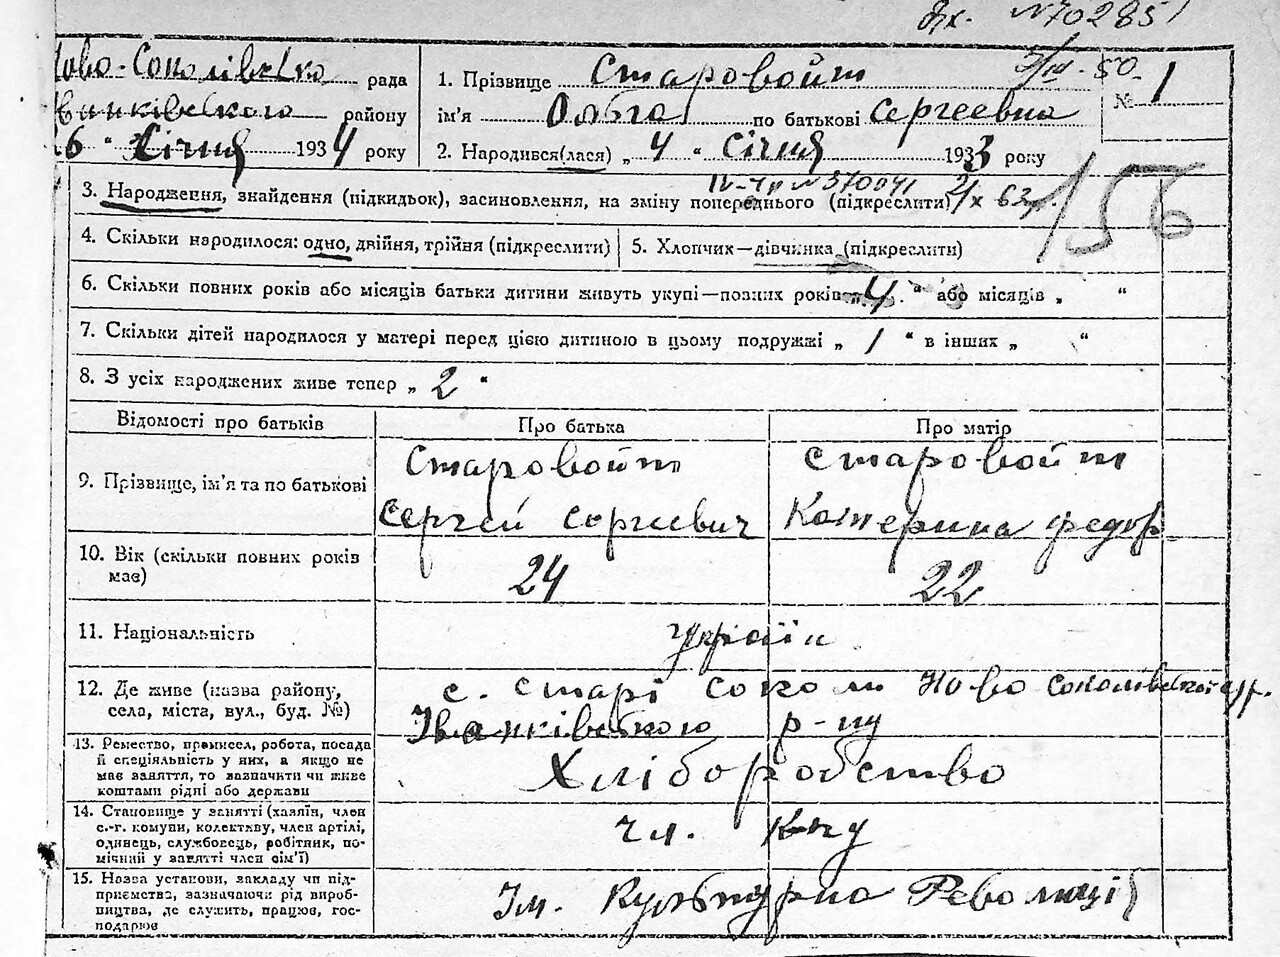 Вх. №70285
Ново-Соколівська рада
Іванківського району
26 " Січня 1934 року
1. Прізвище Старовойт
5/IV-50 № 1
ім'я Ольга по батькові Сергеевна
2. Народився(лася) „ 4 " Січня 1933 року
ІV-ЧП №370041 2/х 62р.
3. Народження, знайдення (підкидьок), засиновлення, на зміну попереднього (підкреслити)
156
4. Скільки народилося: одно, двійня, трійня (підкреслити)
5. Хлопчик—дівчинка (підкреслити)
6. Скільки повних років або місяців батьки дитини живуть укупі—повних років „ 4 " або місяців „ "
7. Скільки дітей народилося у матері перед цією дитиною в цьому подружжі „ 1 " в інших „ "
8. З усіх народжених живе тепер „ 2 "
Відомості про батьків
Про батька
Про матір
9. Прізвище, ім'я та по батькові
Старовойт
Сергей Сергиевич
Старовойт
Катерина Федор
10. Вік (скільки повних років
має)
24
22
11. Національність
україн
12. Де живе (назва району,
села, міста, вул., буд. №)
с. Старі Соколи Ново Соколівської с/р.
Іванківського р-ну
13. Ремество, промисел, робота, посада
й спеціяльність у них, а якщо не
має заняття, то зазначити чи живе
коштами рідні або держави
Хліборобство
14. Становище у занятті (хазяїн, член
с.-г. комуни, колективу, член артілі,
одинець, службовець, робітник, по-
мічний у занятті член сім'ї)
чл. к-пу
15. Назва установи, закладу чи під-
приємства, зазначаючи рід вироб-
ництва, де служить, працює, гос-
подарює
Ім. Культурна Революції